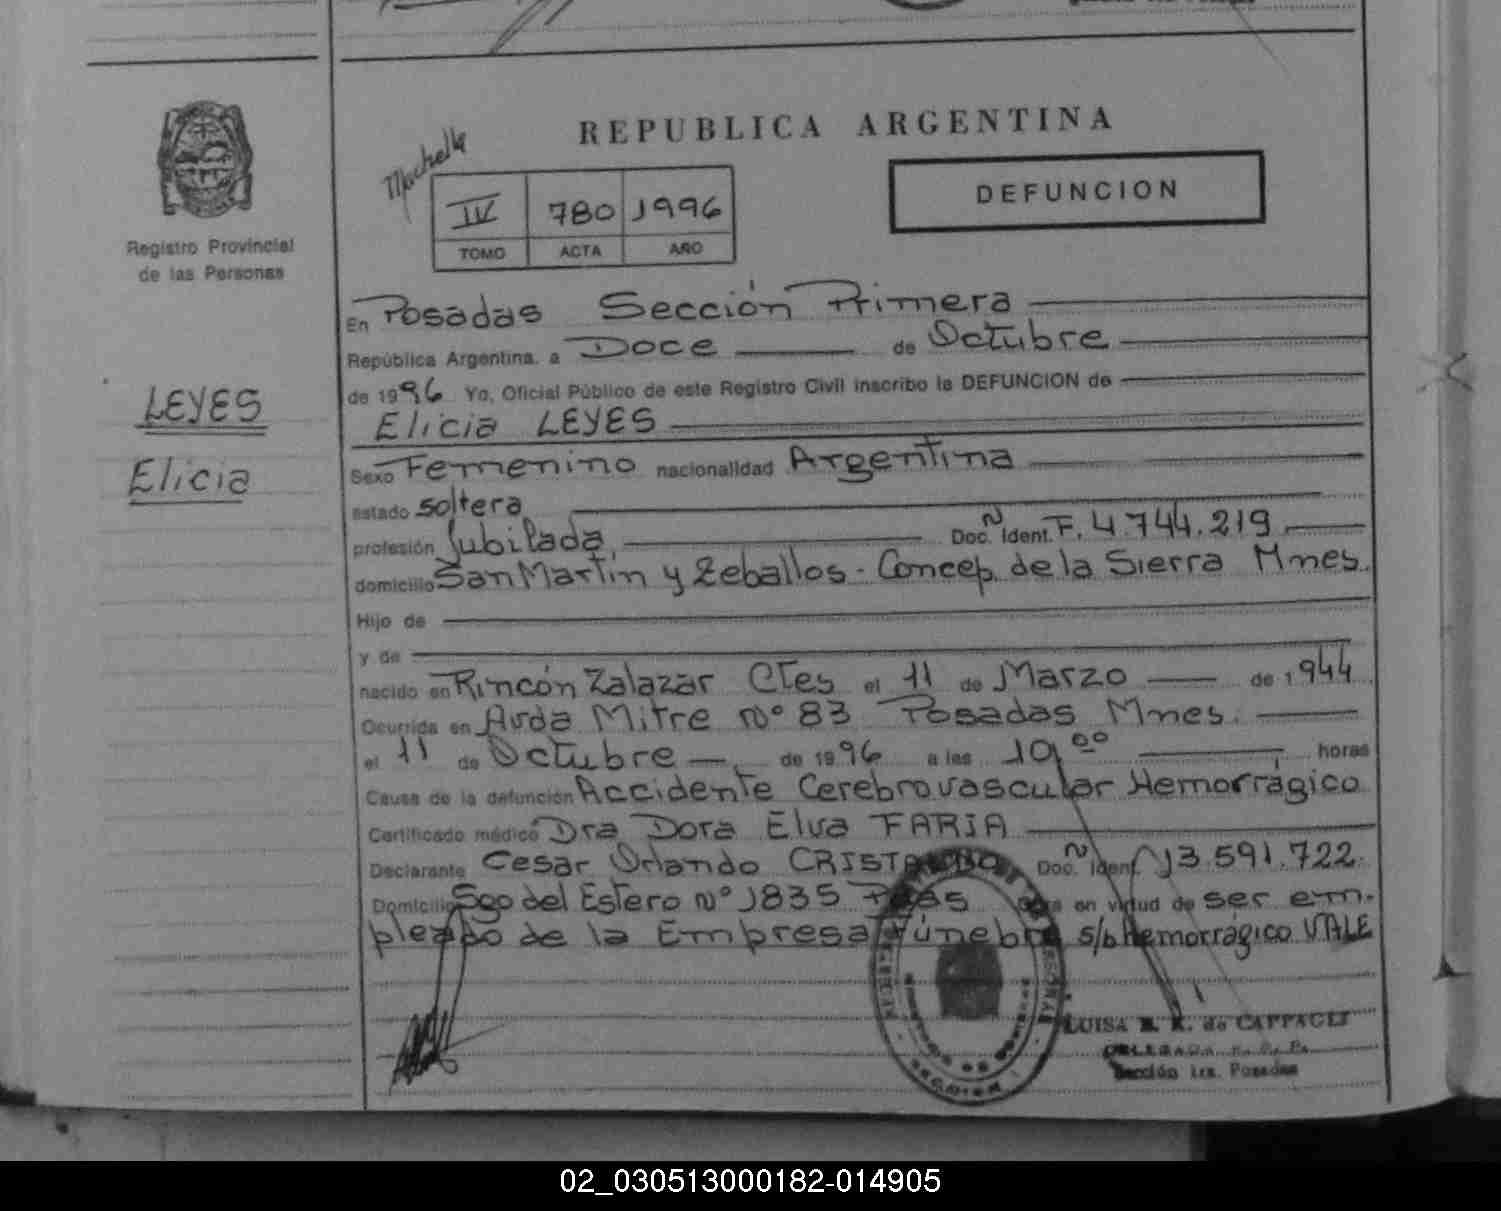 REPUBLICA ARGENTINA
DEFUNCION
IV 780 1996
TOMO ACTA AÑO
Registro Provincial
de las Personas
LEYES
Elicia
En Posadas Sección Primera
República Argentina. a Doce de Octubre
de 1996 Yo, Oficial Público de este Registro Civil inscribo la DEFUNCION de
Elicia LEYES
Sexo Femenino nacionalidad Argentina
estado soltera
profesión Jubilada, Doc. Ident. F. 4.744.219
domicilio San Martin y Zeballos - Concep. de la Sierra Mnes.
Hijo de
y de
nacido en Rincón Zalazar Ctes el 11 de Marzo de 1944
Ocurrida en Avda Mitre Nº 83 Posadas Mnes.
el 11 de Octubre de 1996 a las 10,00 horas
Causa de la defunción Accidente Cerebrovascular Hemorrágico
Certificado médico Dra Dora Elva FARIA
Declarante Cesar Orlando Doc. Ident. 13.591.722
Domicilio Sgo del Estero Nº 1835 Pdas Obra en virtud de ser em-
pleado de la Empresa Fúnebre s/b Hemorrágico VALE
LUISA de
DELEGADA R. P. P.
Sección 1ra. Posadas
02_030513000182-014905